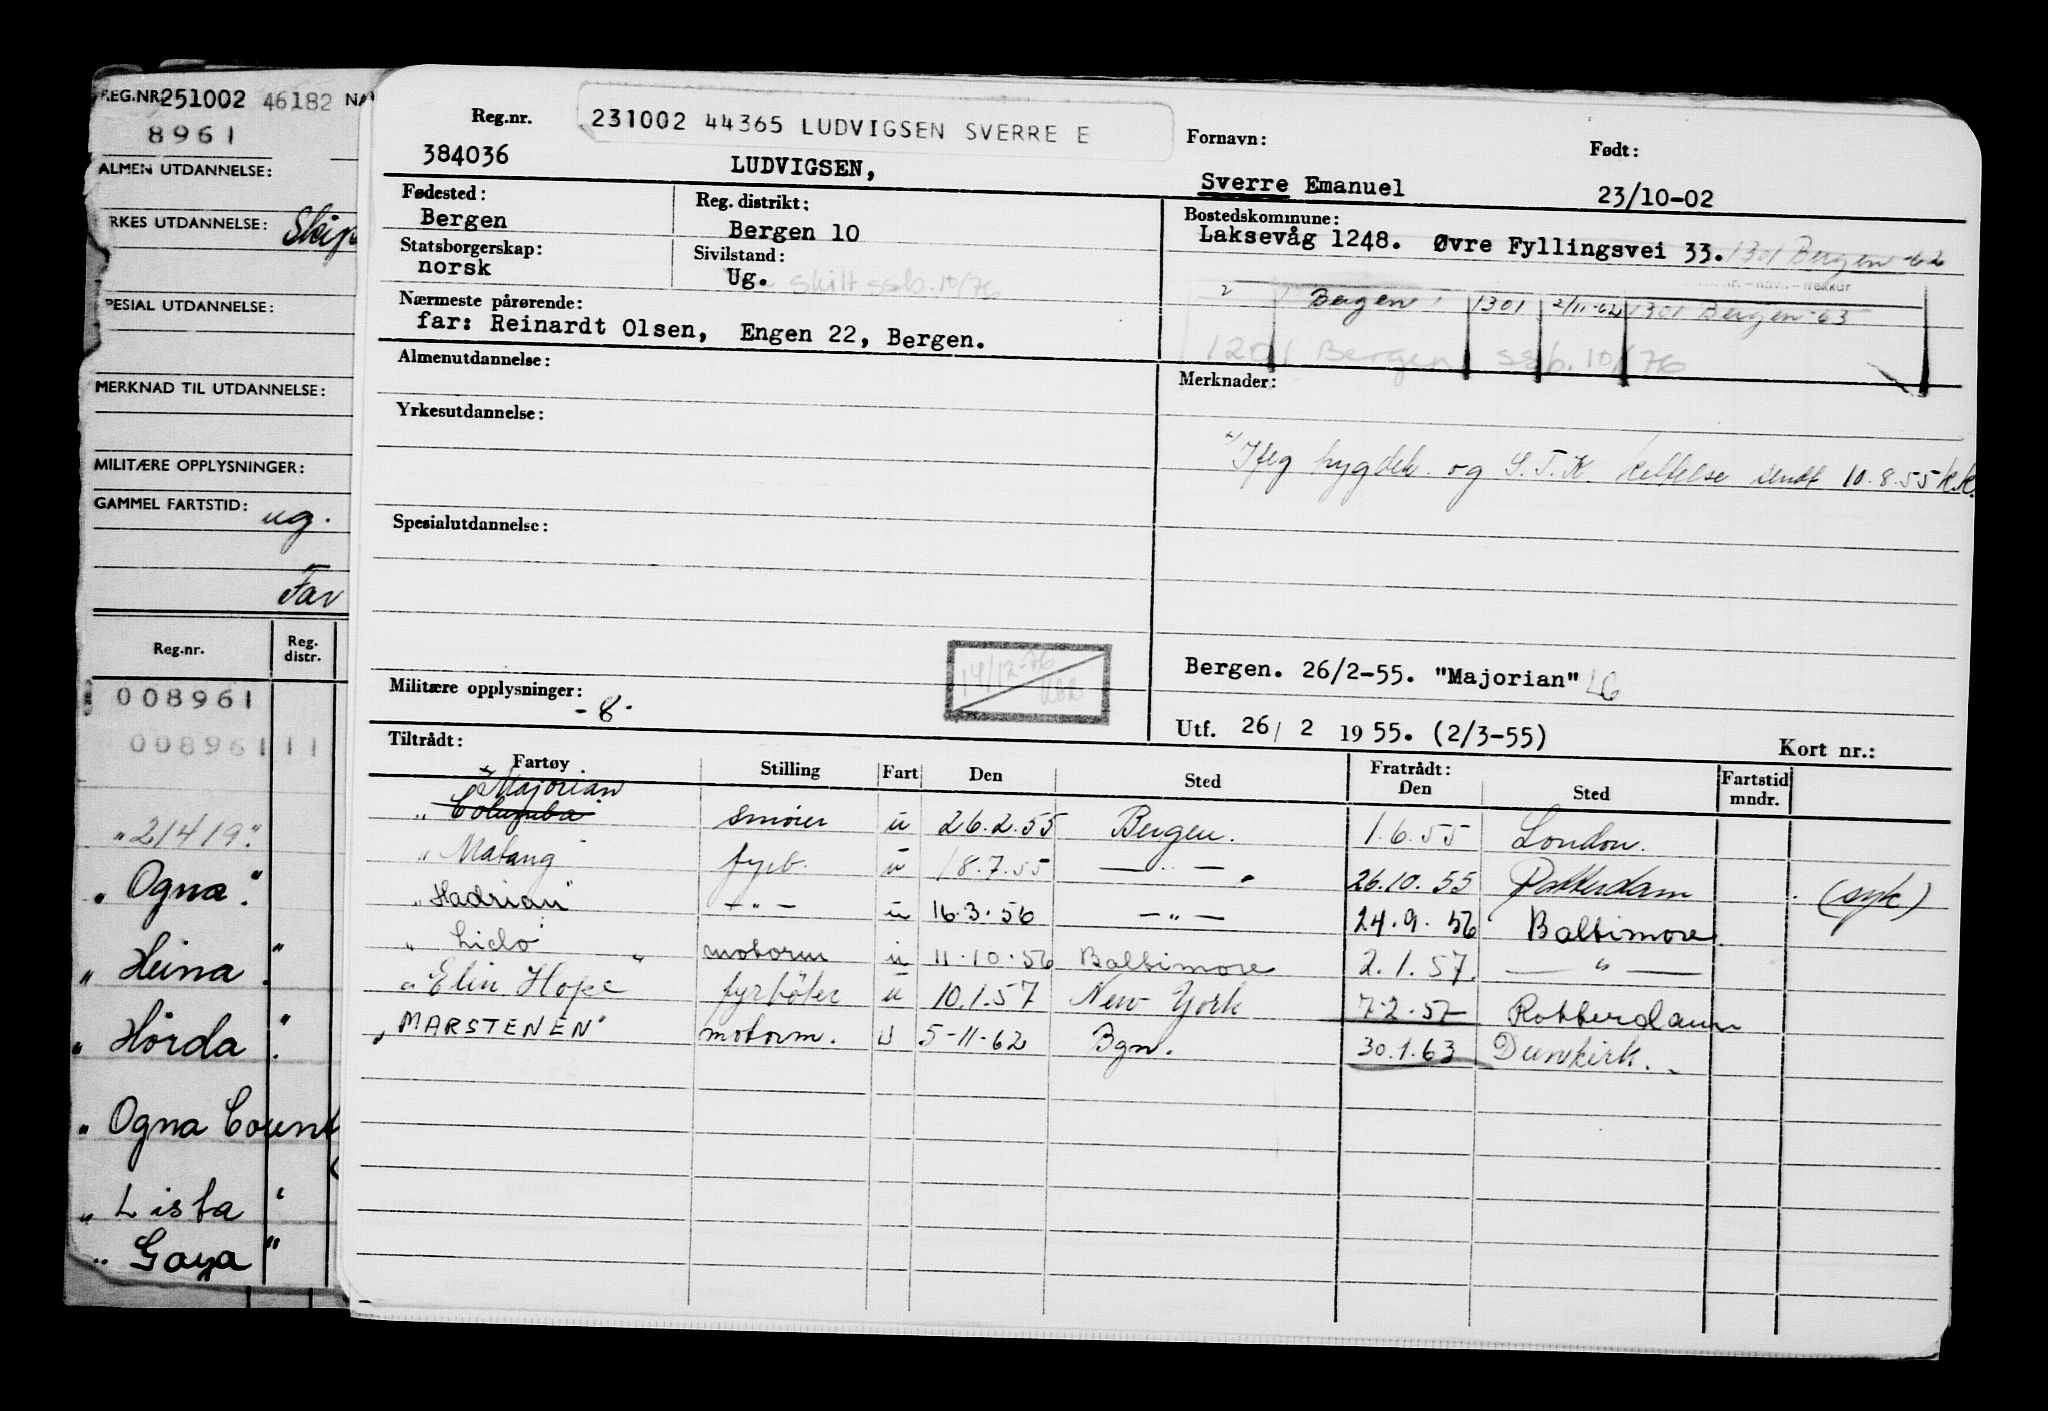 REG.NR. 251002 46182 NA
8961
ALMEN UTDANNELSE:
RKES UTDANNELSE: Skip
PESIAL UTDANNELSE:
MERKNAD TIL UTDANNELSE:
MILITÆRE OPPLYSNINGER:
GAMMEL FARTSTID: ug.
Far
Reg.nr. Reg. distr.
008961
008961 11
"21419"
"Ogna"
"Heina"
"Hörda"
"Ogna Count
"Lista"
"Goya"
Reg.nr. 231002 44365 LUDVIGSEN SVERRE E Fornavn: Født:
384036 LUDVIGSEN, Sverre Emanuel 23/10-02
Fødested: Reg. distrikt: Bostedskommune:
Bergen Bergen 10 Laksevåg 1248. Øvre Fyllingsvei 33. 1301 Bergen -62
Statsborgerskap: Sivilstand:
norsk Ug. skilt ssb. 10/76
Bergen 1301 2/11-62 1301 Bergen-65
Nærmeste pårørende:
far: Reinardt Olsen, Engen 22, Bergen.
1201 Bergen ssb. 10/76
Almenutdannelse: Merknader:
Yrkesutdannelse:
x) Ifeg og S.T.K. sendt 10.8.55 K.K.
Spesialutdannelse:
14/12-76
Bergen. 26/2-55. "Majorian" LG
Militære opplysninger: -8-
Utf. 26/ 2 1955. (2/3-55) Kort nr.:
Tiltrådt: Fratrådt:
Fartøy Stilling Fart Den Sted Den Sted Fartstid mndr.
x Majorian
"Columba" smører u 26.2.55 Bergen. 1.6.55 London.
"Matang" fyrb. u 18.7.55 — " — 26.10.55 Rotterdam (syk)
"Hadrian" — " — u 16.3.56 — " — 24.9.56 Baltimore.
"Lido" motorm u 11.10.56 Baltimore 2.1.57. — " —
"Elin Hope" fyrbøter u 10.1.57 New York 7.2.57 Rotterdam
"MARSTENEN" motorm. U 5-11-62 Bgn. 30.1.63 Dunkirk.